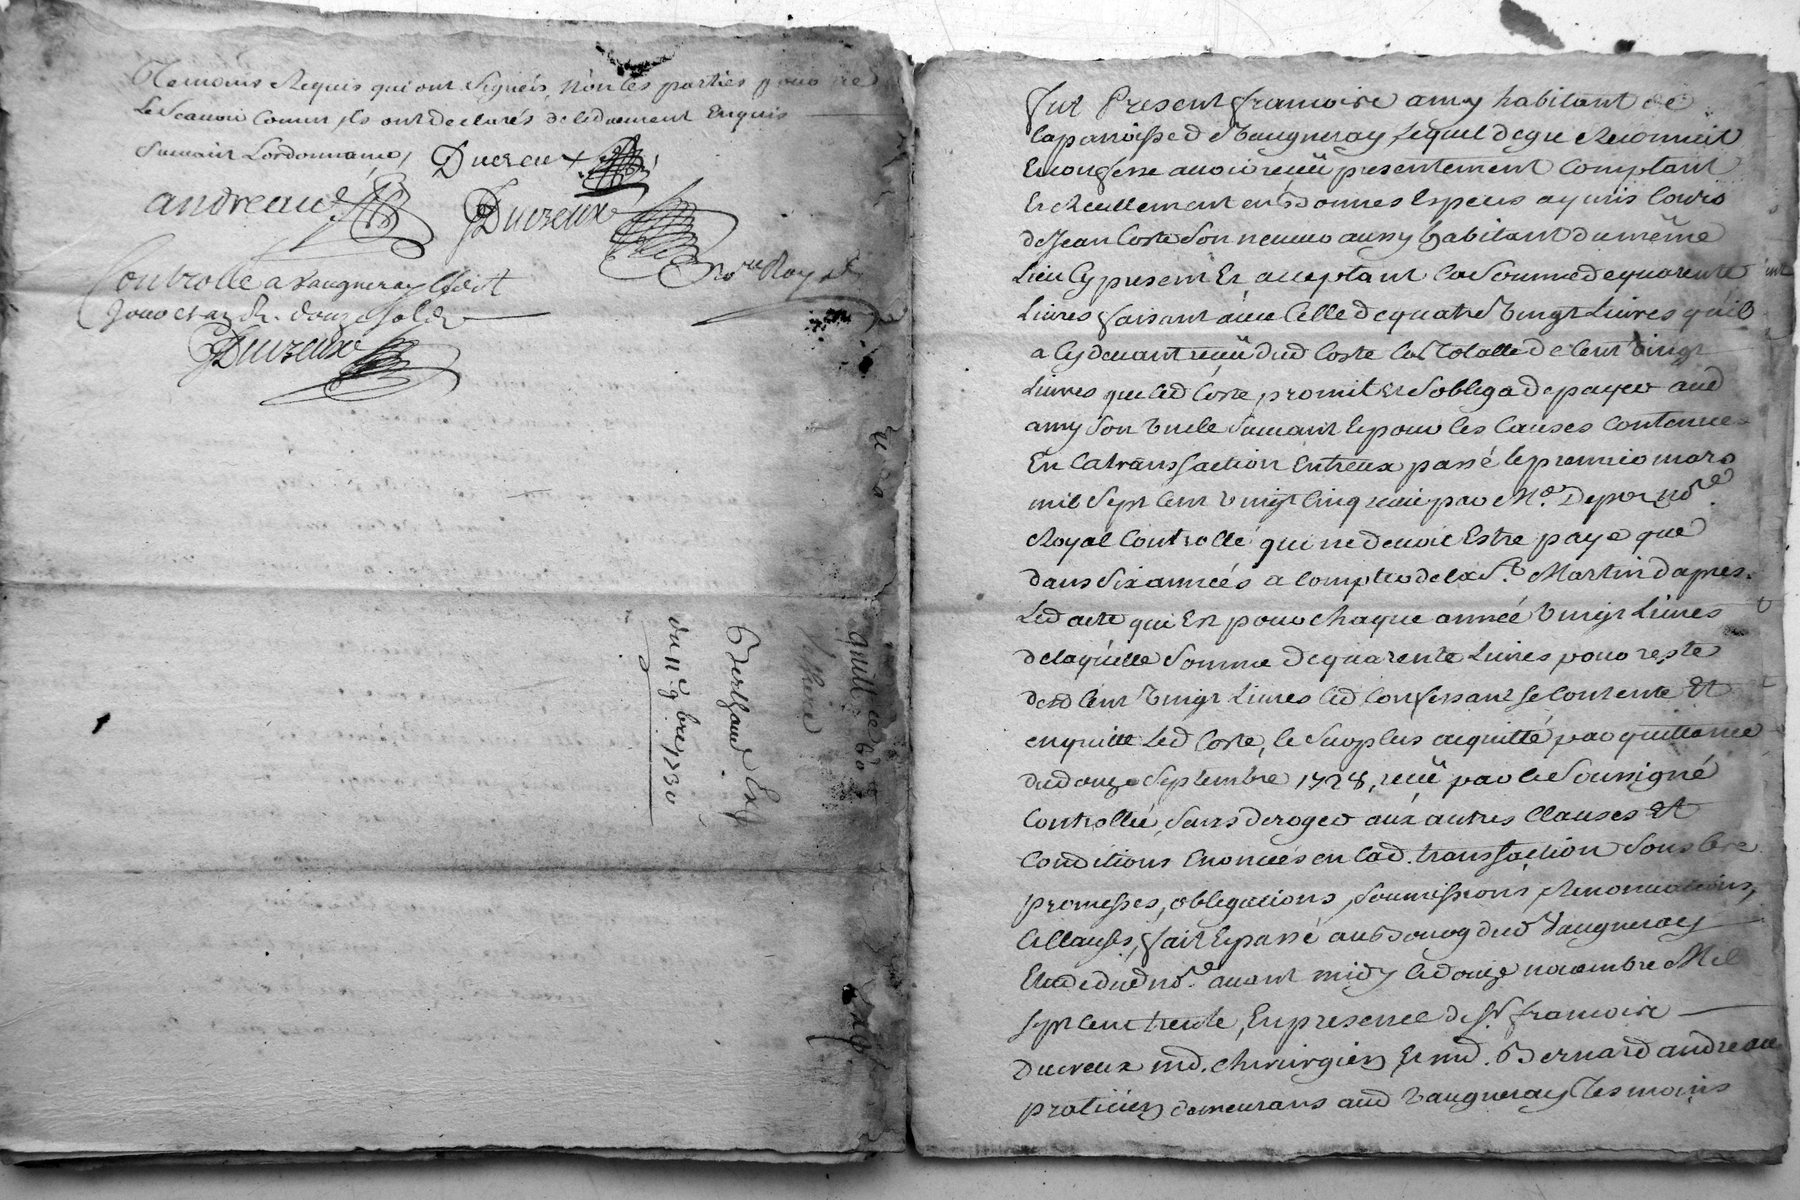 Temoins Requis qui ont Signés, Non les parties pour ne
Le Scavoir Comme ils ont declarés de ce duement Enquis
Suivant Lordonnance,
Ducreux
andreau
Duczeux
no.re Royal
Controllé a Vaugneray Ledit
Jour et an R. douze sols
Duczeux
quittce
Berthaud Exp
du 11e 9bre 1730
Exp.
Fut Present francoise amy habitant de
la paroisse de Vaugneray, lequel de gre Reconnoit
Et confesse avoir receü presentement Comptant
Et Reellement en bonnes Especes ayants Cours
de Jean Coste son neveu aussy habitant du même
Lieu Cy present Et acceptant la Somme de quarente
Livres faisant avec Celle de quatre Vingt Livres qu'il
a Cy devant receü dud Coste La Totalle de Cent vingt
Livres que led Coste, promit Et Sobliga de payer aud
amy Son Oncle Suivant Et pour les Causes Contenues
En la transaction Entreux passé le premier mars
mil Sept Cent Vingt Cinq receü par Me. Depor nore.
Royal Controllé qui ne devoit Estre payé que
dans Six années a Compter de la St. Martin dapres
Led acte qui Est pour chaque année Vingt Livres
de laquelle Somme de quarente Livres pour reste
desd Cent Vingt Livres led Confessant se Contente Et
en quitte Led Coste, le Surplus acquitté par quittance
du douze Septembre 1728, receü par le Soussigné
Controllée, Sans deroger aux autres Clauses Et
Conditions Enoncées en lad. transaction Sous les
promesses, obligations, Soumissions, Renonciations,
Et Clauses, fait Et passé au Bourg dud Vaugneray
Etude dud nore. avant midy le onze novembre Mil
Sept Cent trente, En presence de Sr. francoise
Ducreux md. chirurgien Et md. Bernard andreau
praticien demeurans aud Vaugneray Tesmoins